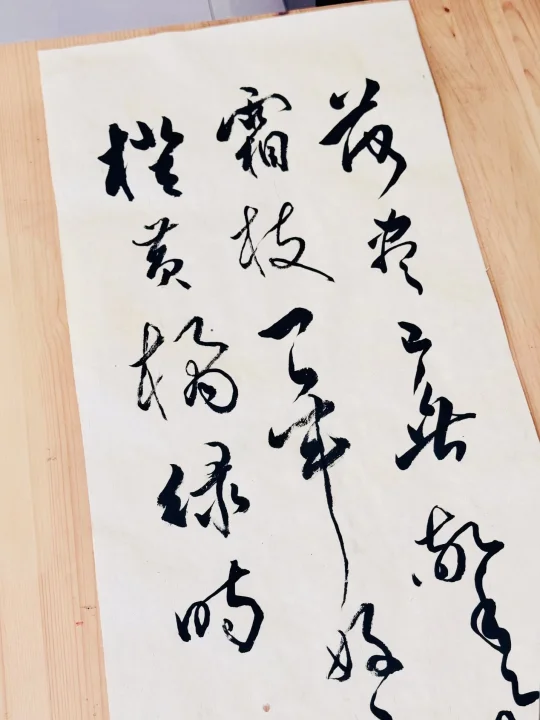 荷尽已無擎
霜枝一年好
橙黄橘绿时